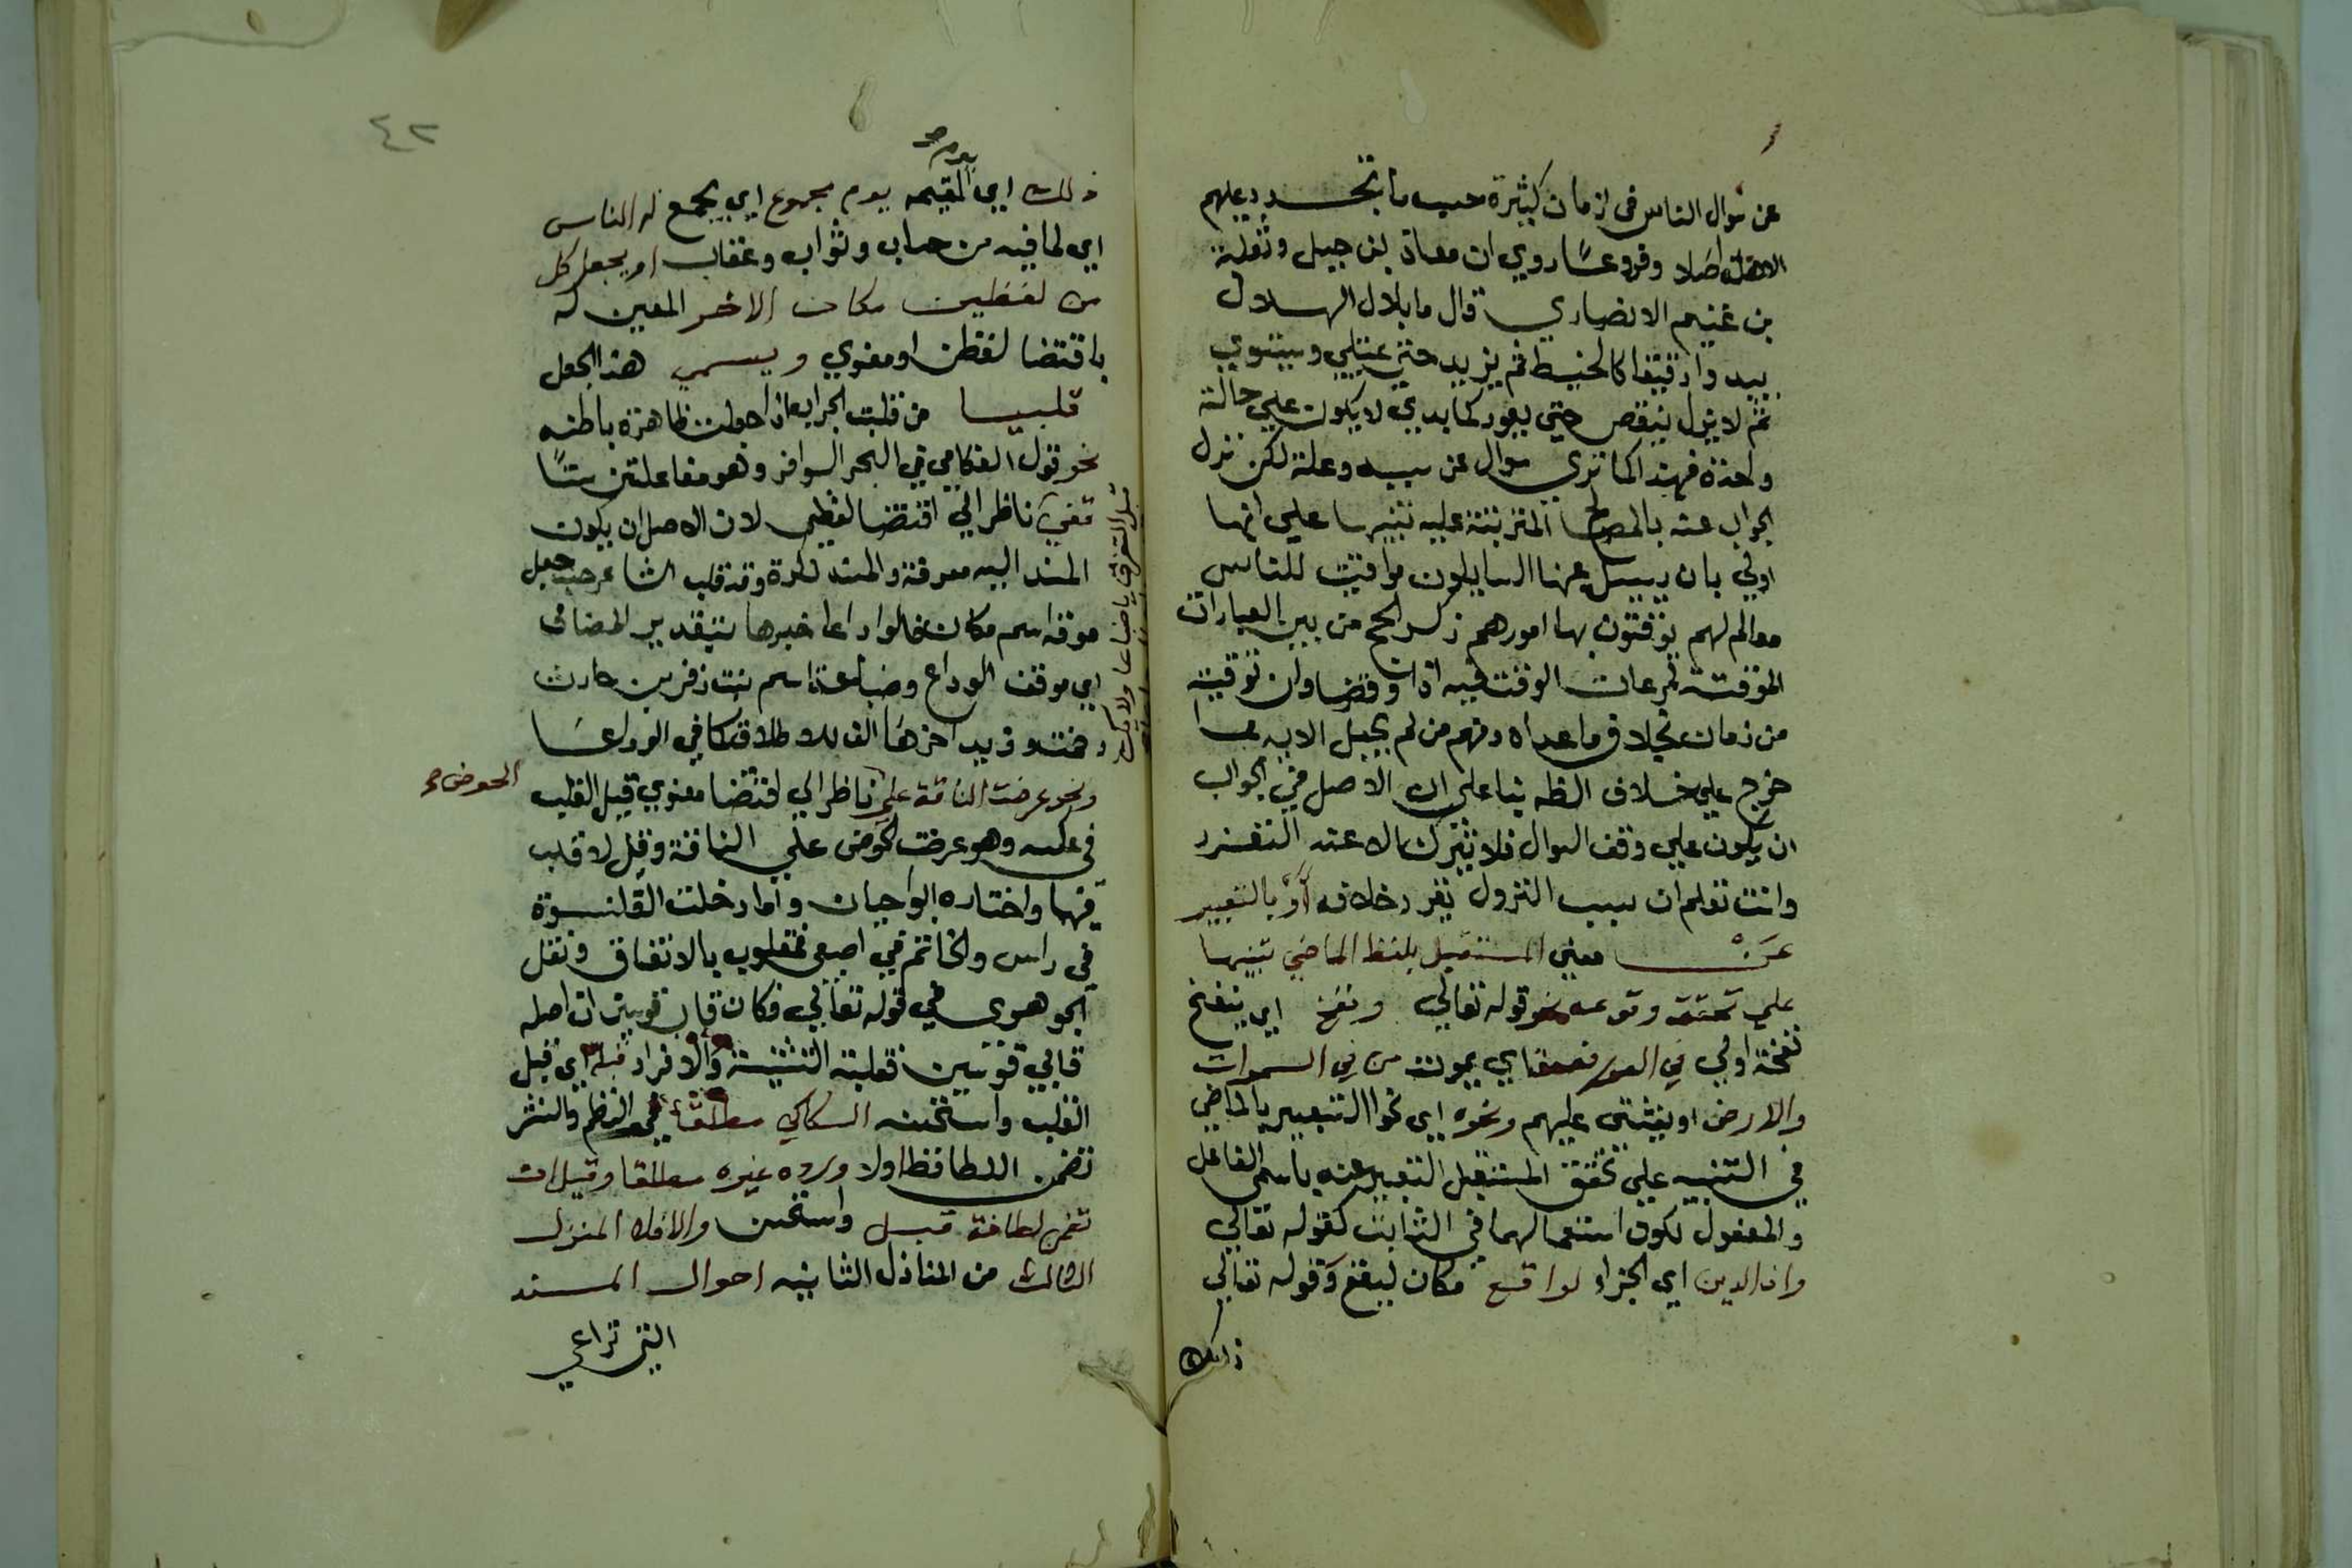 عن سوال الناس في ازمان كثيرة حسب ما يتجدد عليهم
وفروعا روي ان معاذ ابن جبل وثعلبة
بن غنيم الانصاري قال ما بال الهلال
يبدوا دقيقا كالخيط ثم يزيد حتى يمتلي ويستوي
ثم لا يزل ينقص حتى يعود كما بدي لا يكون علي حالة
واحدة فهذا كما تري سوال عن سبب وعلة لكن نزل
الجواب عنه بالمصالح المترتبة عليه تنبيها علي انها
اولي بان يسيل عنها السايلون مواقيت للناس
معالم لهم يوقتون بها امورهم ذكر الحج من بين العبارات
الموقتة لمرعات الوقت فيه اداء وقضا وان توقيته
من زمان بخلاف ما عداه ومنهم من لم يجعل الايه مما
خرج علي خلاف الظه بنا علي ان الاصل في الجواب
ان يكون علي وفق السوال فلا يترك الا عند التعذر
وانت تعلم ان سبب النزول يقرر خلافه او بالتعبير
عن معني المستقبل بلفظ الماضي تنبيها
علي تحققه وقوعه نحو قوله تعالي ونفخ اي ينفخ
نفخة اولي في الصور فصعق اي يموت من في السموات
والارض او يغشي عليهم ونحوه اي نحو التعبير بالماضي
في التنبيه علي تحقق المستقبل التعبير عنه باسمي الفاعل
والمفعول لكون استعمالهما في الثابت كقوله تعالي
وان الدين اي الجزاء لواقع مكان ليقع وقوله تعالي
ذلك
٤٢
يوم صح
ذلك اي القيمه يوم مجموع اي يجمع له الناس
اي لما فيه من حساب وثواب وعقاب او بجعل كل
من لفظين مكان الاخر المعين له
باقتضا لفظن او معنوي ويسمي هذا الجعل
قلبيا من قلبت الجراب اذا جعلت ظاهره باطنه
نحو قول القطامي في البحر الوافر وهو مفاعلتن ستا
قفي ناظر الي اقتضا لفظي لان الاصل ان يكون
المسند اليه معرفة والمسند نكرة وقد قلب الشاعر حيث جعل
موقف اسم مكان خبرها بتقدير المضاف
اي موقف الوداع وضباعة اسم بنت زفر بن حارث
قبل التفرق يا ضباعا ولا يك
الوداعا
الحوض صح
ونحو عرضت الناقة علي ناظر الي اقتضا معنوي قبل القلب
في عكسه وهو عرضت الحوض علي الناقة وقيل لا قلب
فيهما واختاره ابو حيان واما دخلت القلنسوة
في راس والخاتم في اصبعي فمقلوب بالاتفاق ونقل
الجوهري في قوله تعالي فكان قاب قوسين ان اصله
قابي قوسين فقلبت التثنية والافراد اي قبل
القلب واستحسنه السكاكي مطلقا في النظم والنثر
تضمن اللطافة اولا ورده غيره مطلقا وقيل ان
تضمن لطافة قبل واستحسن والا فلا المنزل
الثالث من المنازل الثمانيه احوال المسند
التي تراعي